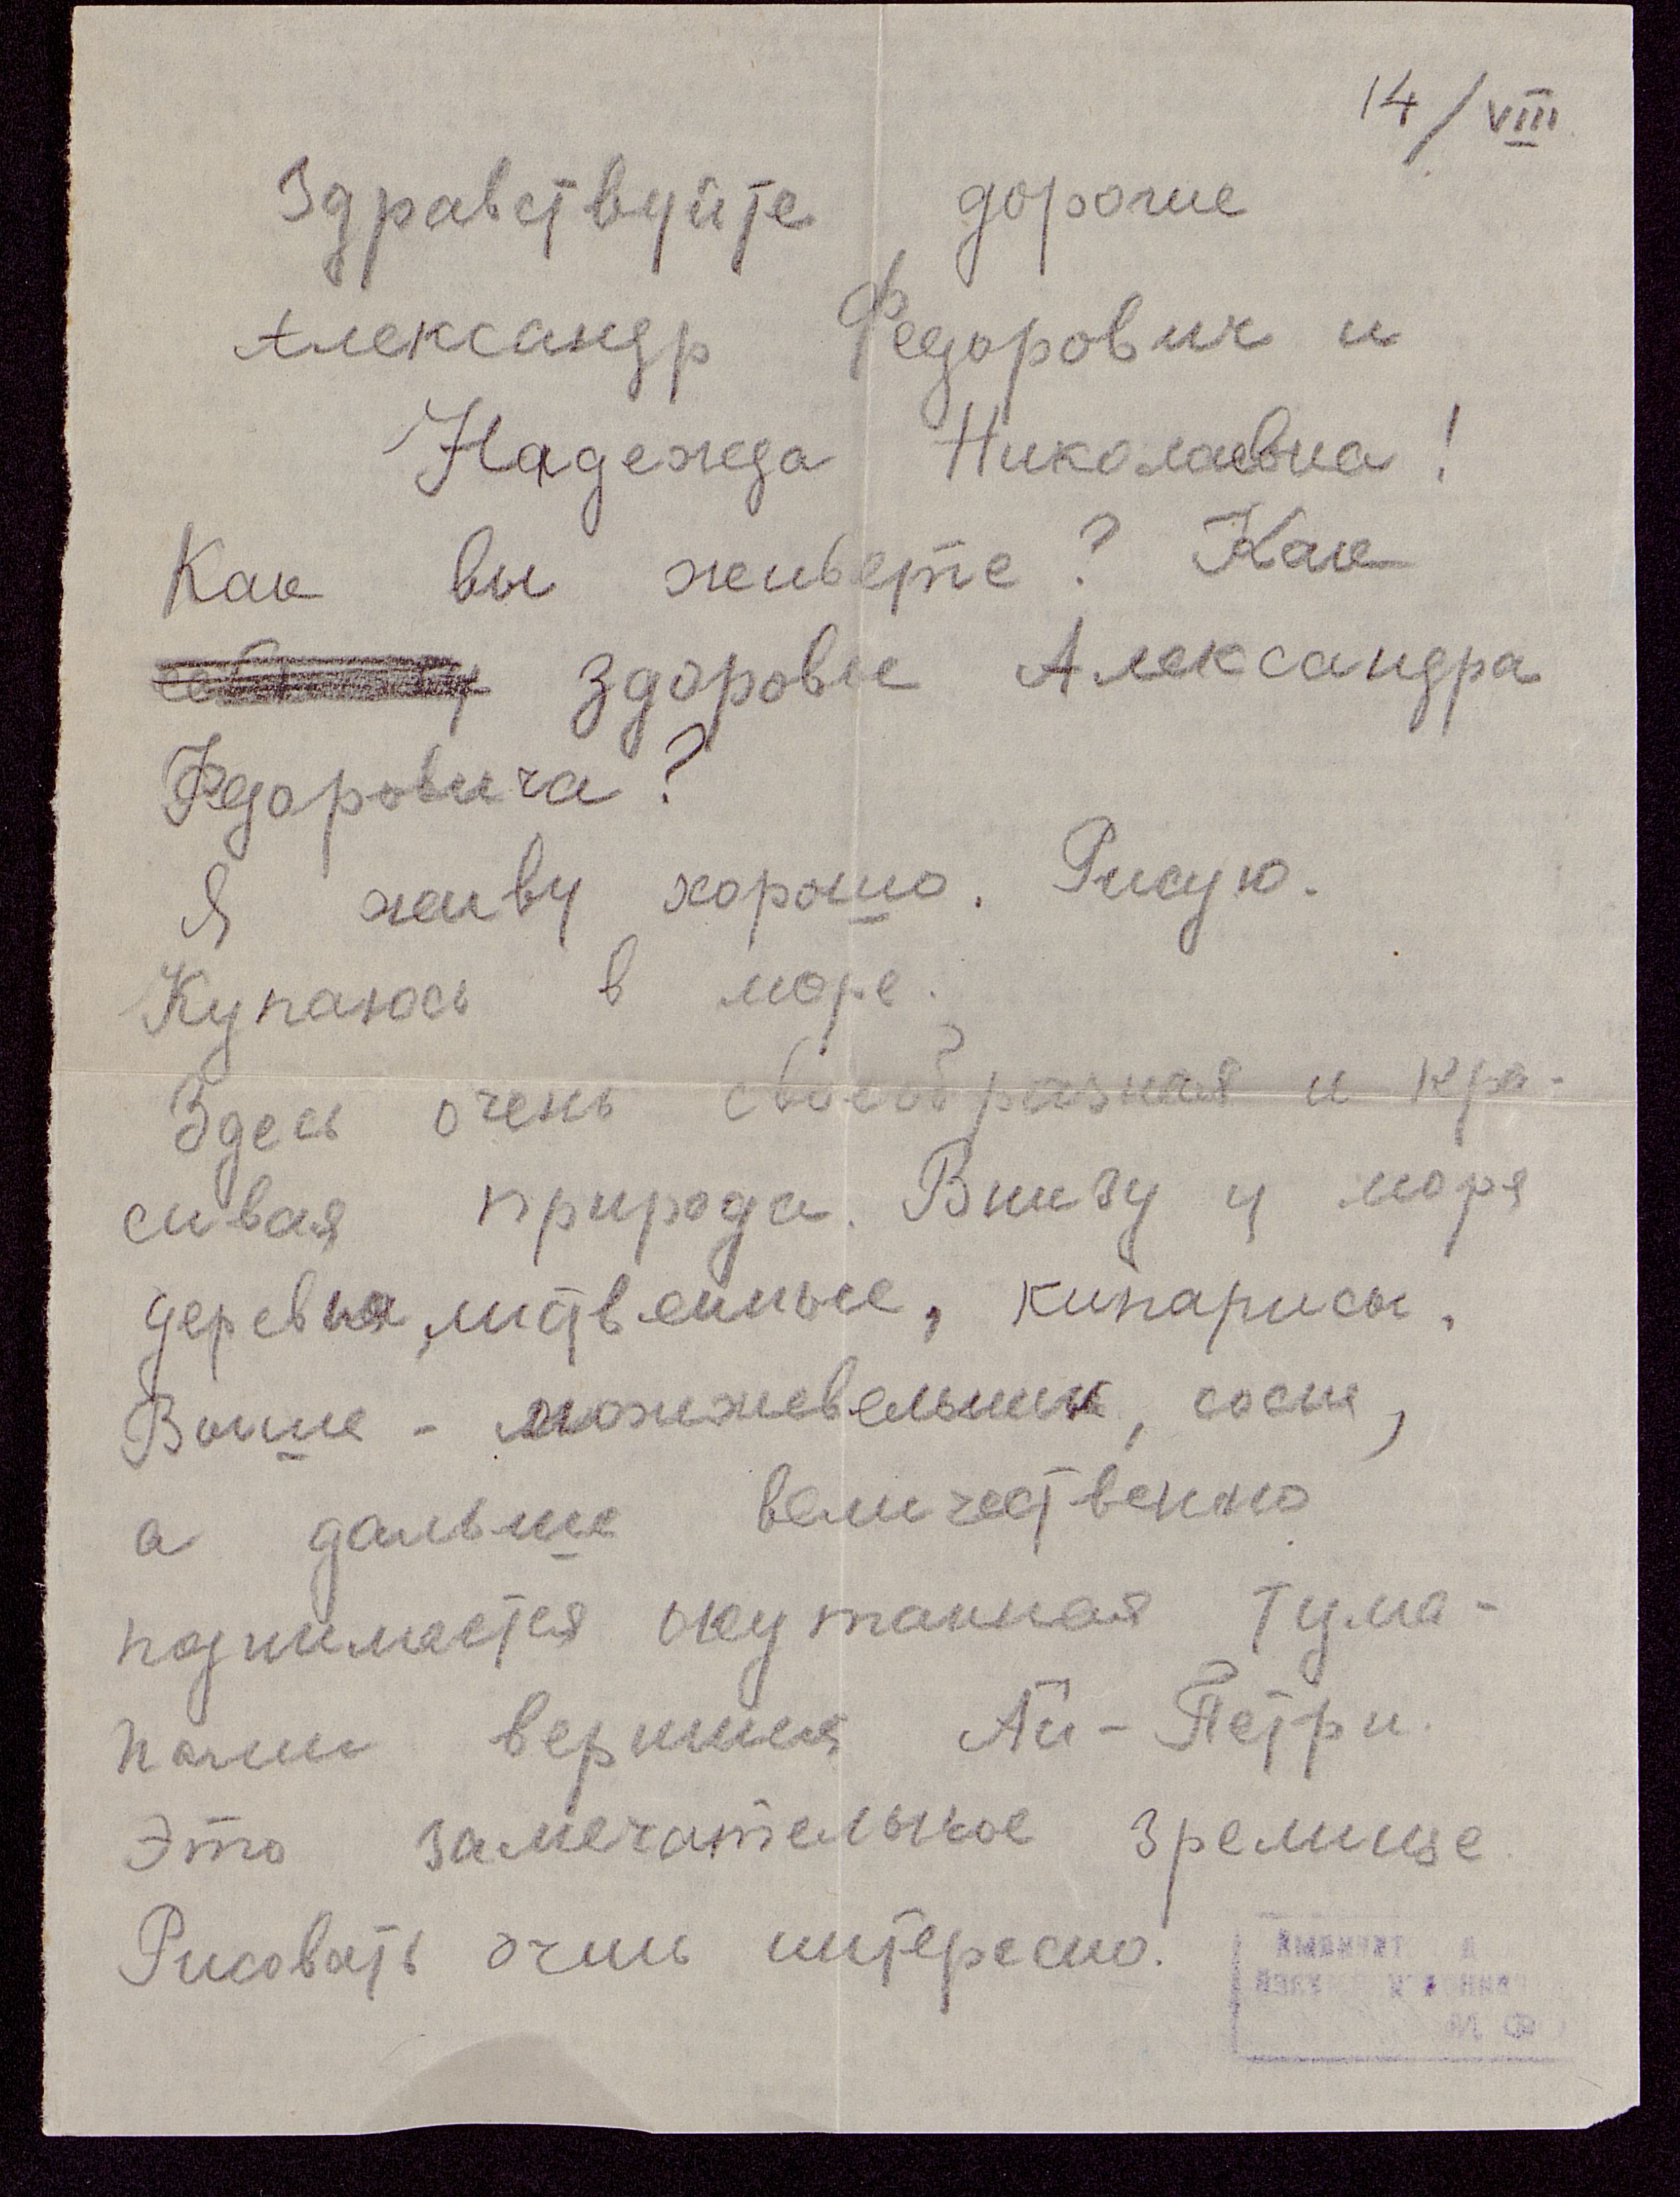 14/VIII
Здравствуйте дорогие
Александр Федорович и
Надежда Николаевна!
Как вы живете? Как
здоровье Александра
Федоровича?
Я живу хорошо. Рисую.
Купаюсь в море.
Здесь очень своеобразная и кра-
сивая природа. Внизу у моря
деревья, лиственные, кипарисы.
Выше - можжевельник, сосны,
а дальше величественно
поднимается окутанная тума-
нами вершина Ай-Петри.
Это замечательное зрелище.
Рисовать очень интересно.